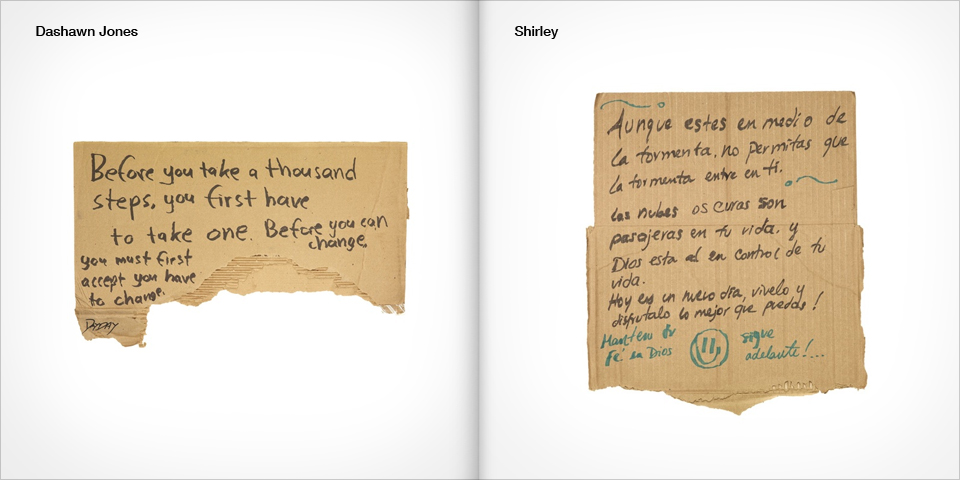 Dashawn Jones
Before you take a thousand
steps, you first have
to take one. Before you can
change
you must first
accept you have
to change.
DAYDAY
Shirley
Aunque estes en medio de
la tormenta, no permitas que
la tormenta entre en ti.
las nubes oscuras son
pasajeras en tu vida. y
Dios esta al en control de tu
vida.
Hoy es un nuevo dia, vivelo y
disfrutalo lo mejor que puedas!
Manten tu
Fé en Dios
sigue
adelante!...